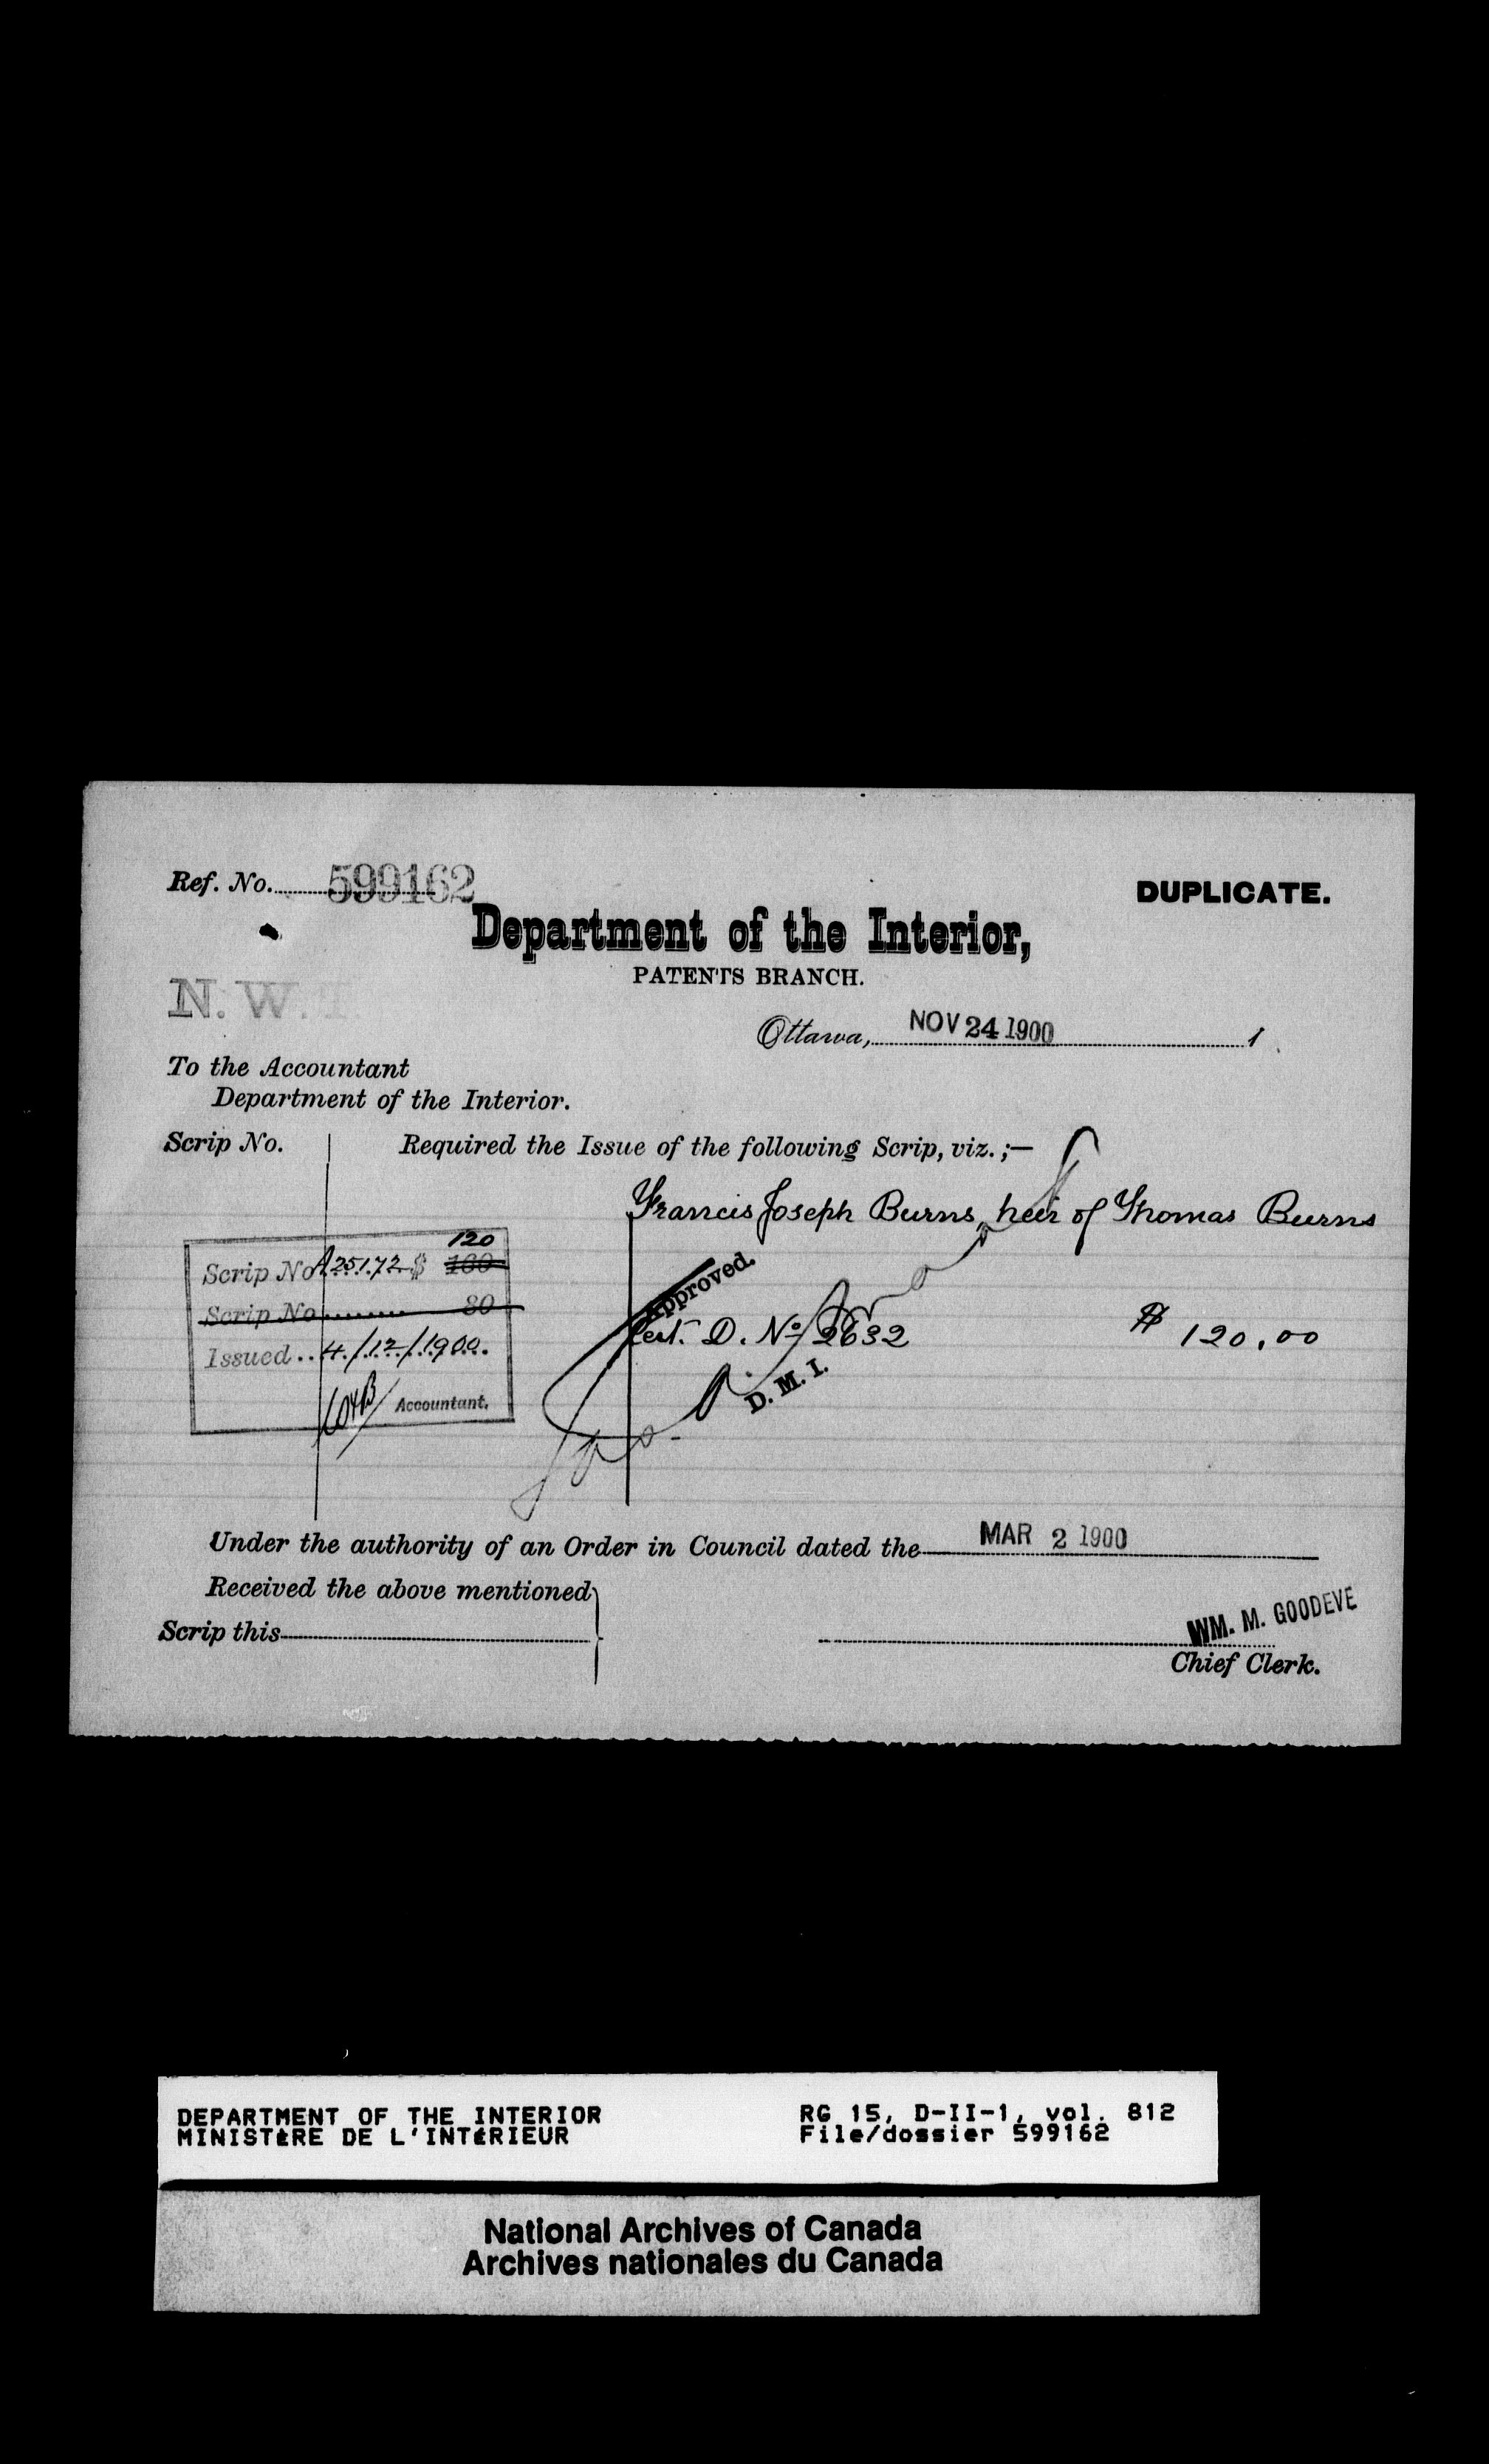 Ref. No. 599162
DUPLICATE.
Department of the Interior,
PATENTS BRANCH.
N. W. T.
Ottawa, NOV 24 1900 1
To the Accountant
Department of the Interior.
Scrip No. Required the Issue of the following Scrip, viz.;—
Francis Joseph Burns, heir of Thomas Burns
120
Scrip No A25172 $ 160
Scrip No 80
Issued 4/12/1900.
Accountant.
Approved.
Cert. D. No 2632 $ 120.00
D. M. I.
Under the authority of an Order in Council dated the MAR 2 1900
Received the above mentioned
Scrip this
WM. M. GOODEVE
Chief Clerk.
DEPARTMENT OF THE INTERIOR RG 15, D-II-1, vol. 812
MINISTÈRE DE L'INTÉRIEUR File/dossier 599162
National Archives of Canada
Archives nationales du Canada